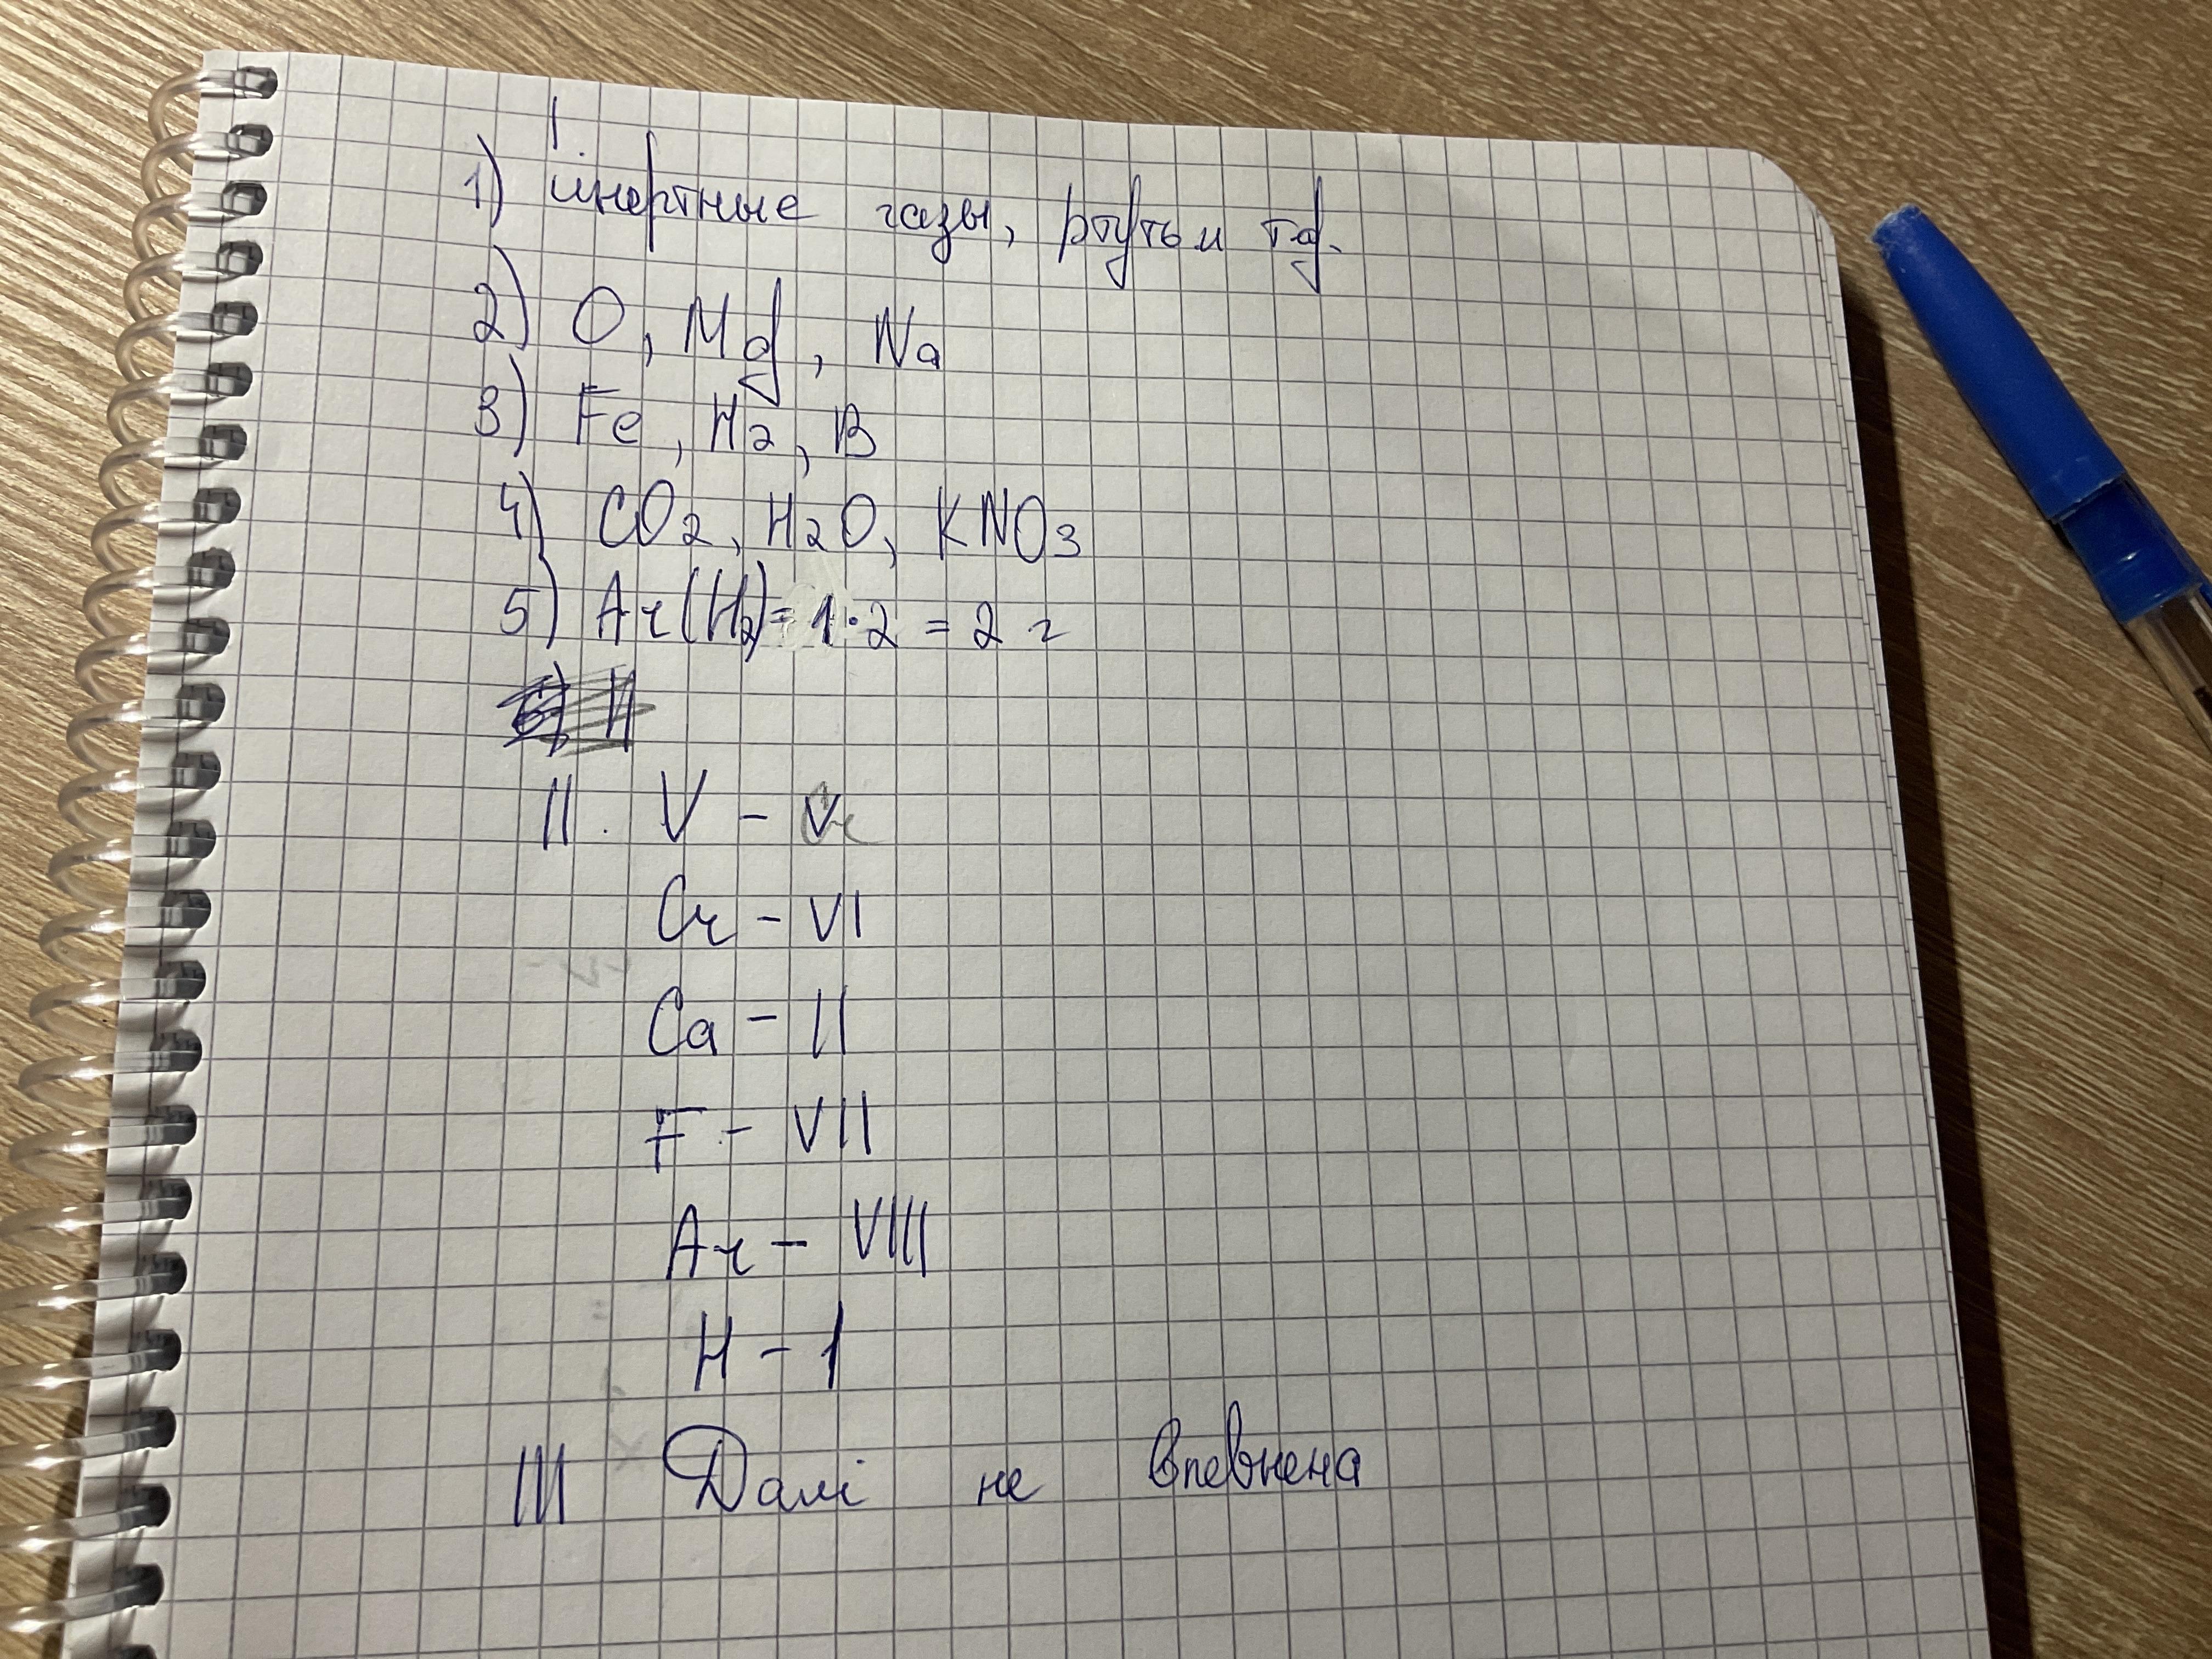 I.
1) инертные газы, ртуть и т.д.
2) O, Mg, Na
3) Fe, H2, B
4) CO2, H2O, KNO3
5) Ar(H2) = 1·2 = 2 г
II. V - V
Cr - VI
Ca - II
F - VII
Ar - VIII
H - 1
III Далі не впевнена